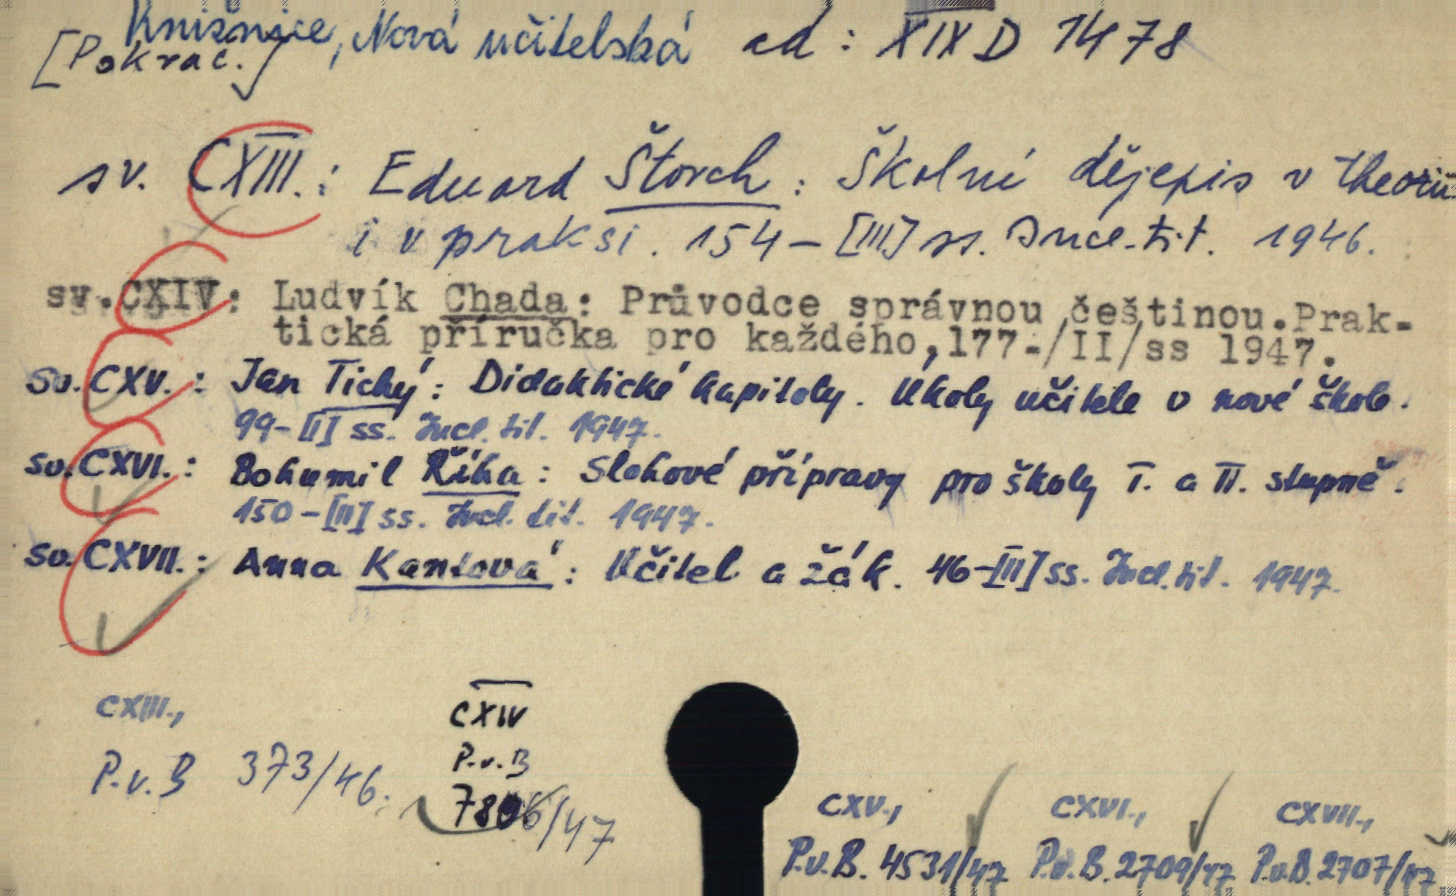 Knižnice, Nová učitelská ad: XIX D 1478
[Pokrač.]
sv. CXIII.: Eduard Štorch: Školní dějepis v theorii
i v praksi. 154-[III] ss. Incl. tit. 1946.
sv.CXIV: Ludvík Chada: Průvodce správnou češtinou.Prak-
tická příručka pro každého,177-/II/ss 1947.
Sv. CXV.: Jan Tichý: Didaktické kapitoly. Úkoly učitele v nové škole.
99-[I] ss. Incl. tit. 1947.
Sv. CXVI.: Bohumil Říha: Slohové přípravy pro školy I. a II. stupně.
150-[II] ss. Incl. tit. 1947.
Sv. CXVII.: Anna Kantová: Učitel a žák. 46-[II] ss. Incl. tit. 1947.
CXIII.,
P.v.B 373/46.
CXIV
P.v.B
/47
CXV., CXVI., CXVII.,
P.v.B. 4531/47 P.v.B. 2709/47 P.v.B. 2707/47